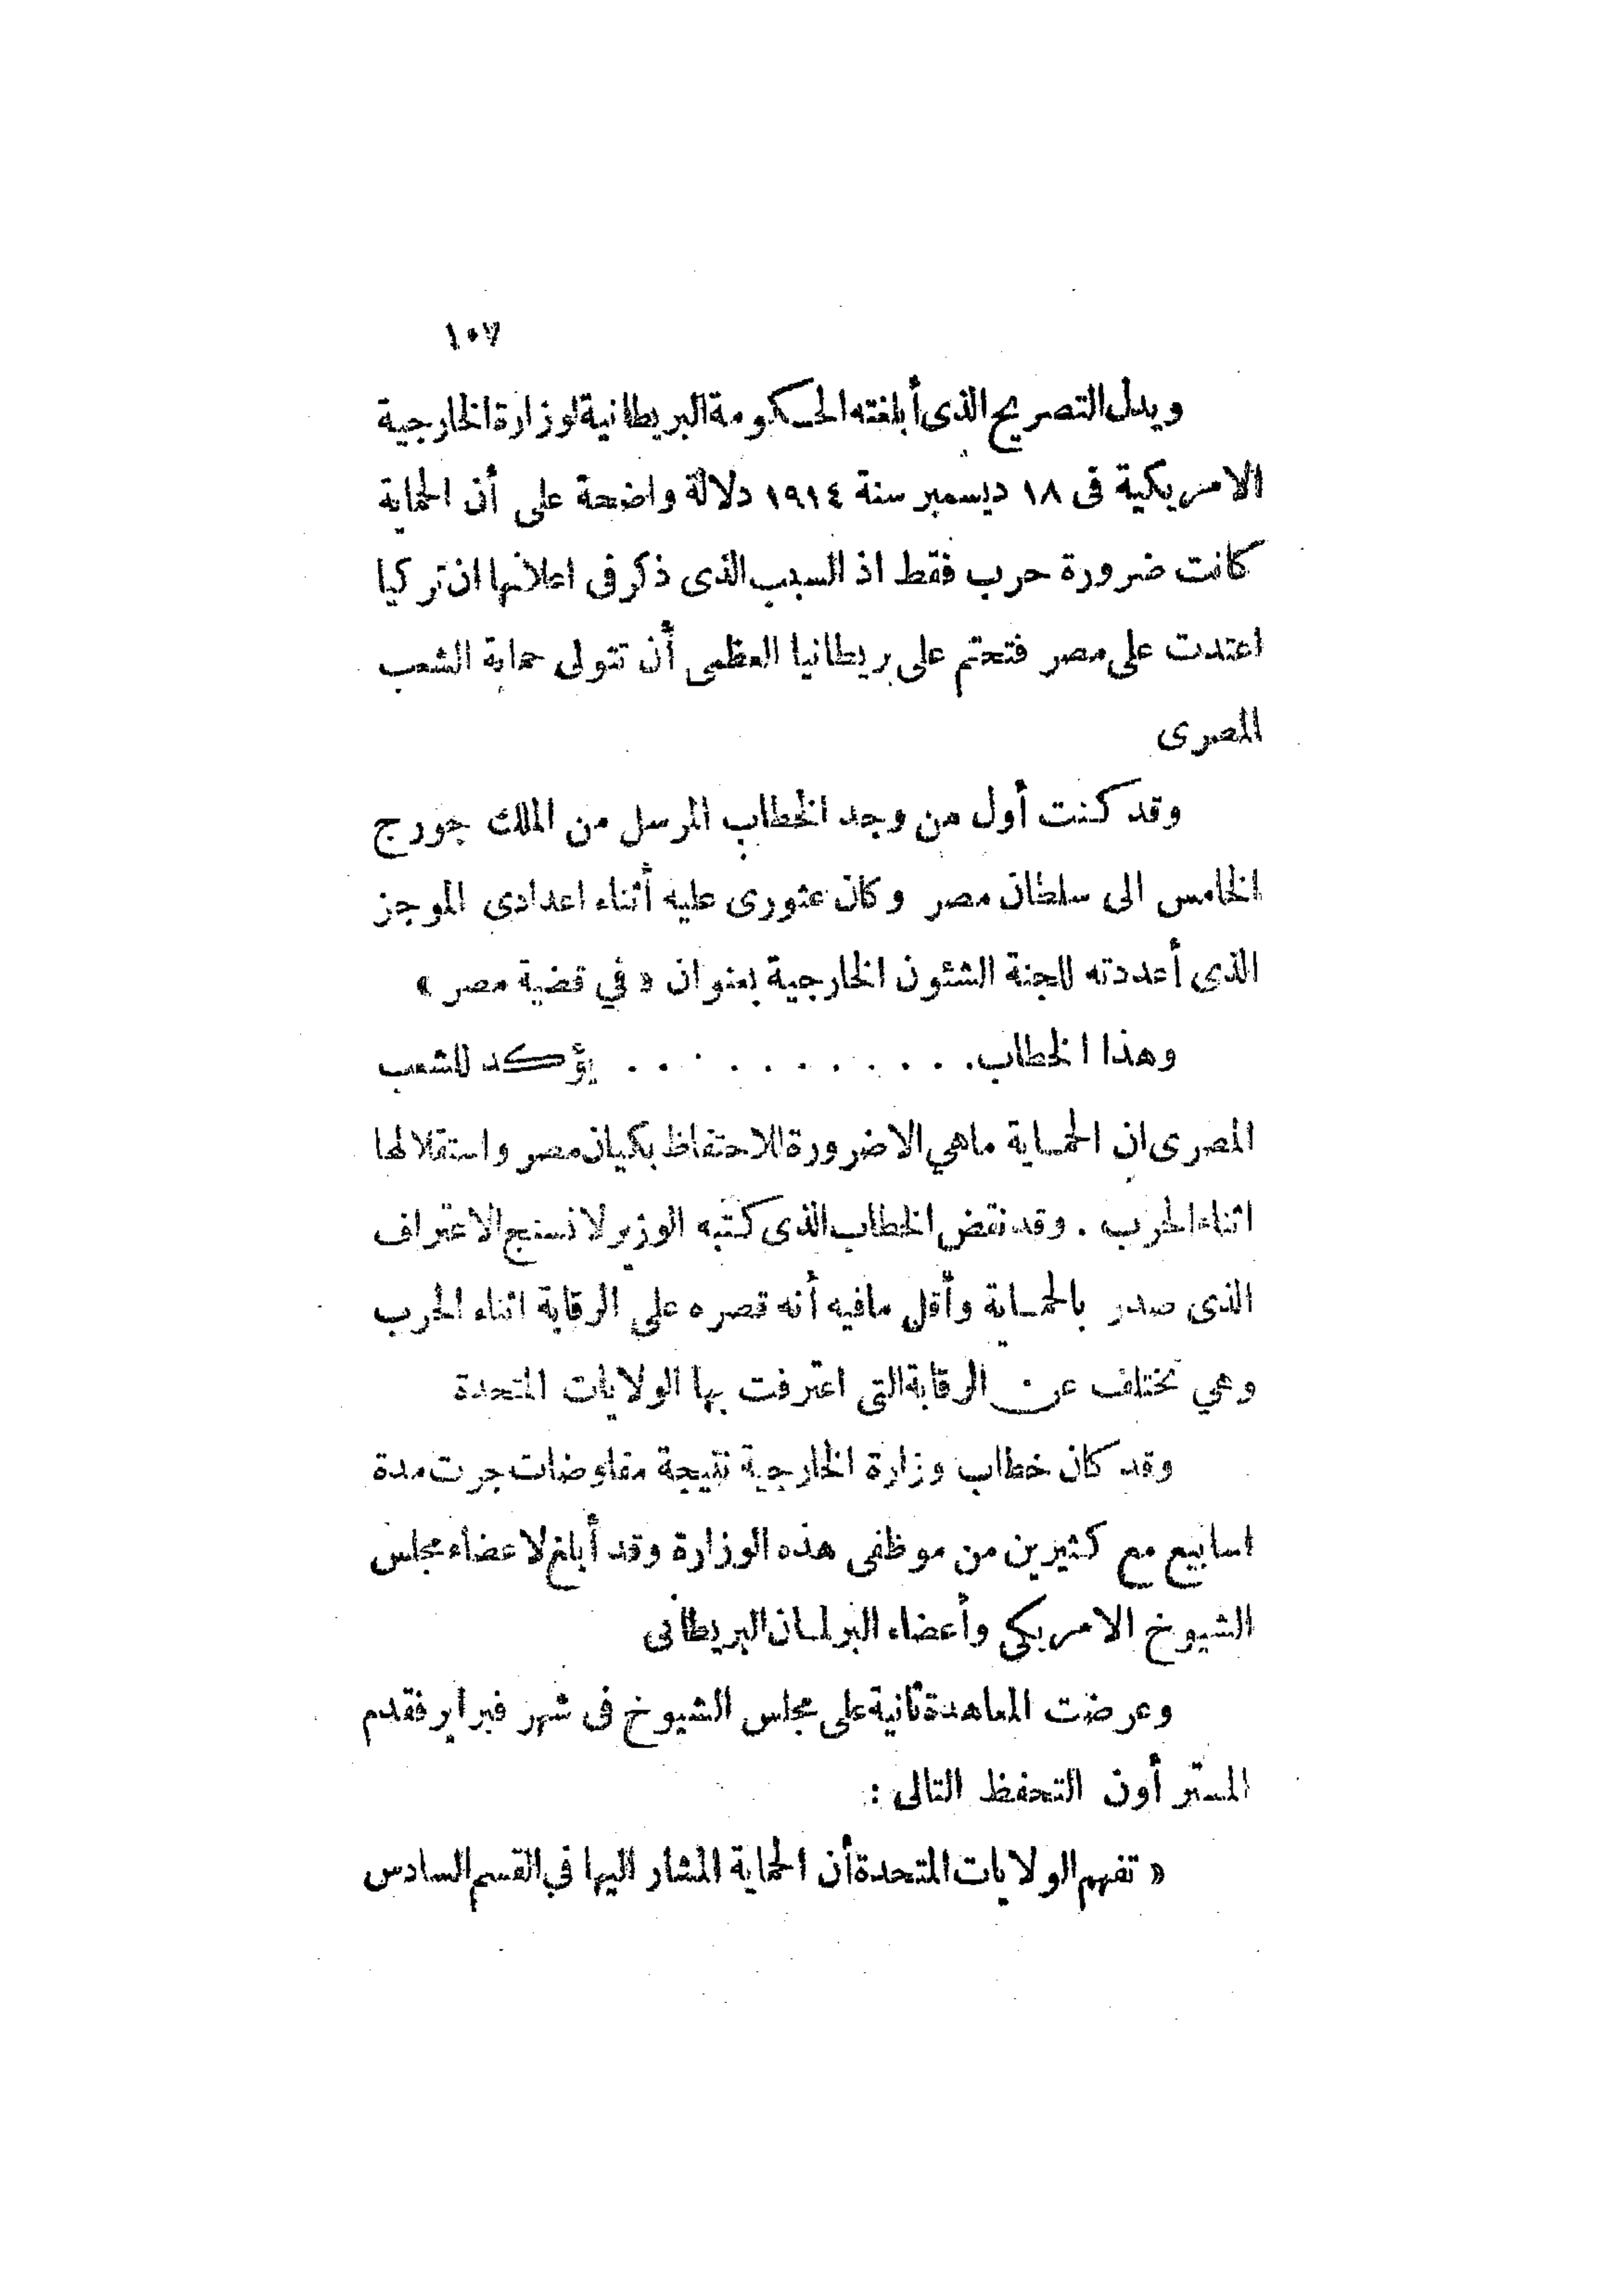 ١٠٧
ويدل التصريح الذى أبلغته الحكومة البريطانية لوزارة الخارجية
الامريكية فى ١٨ ديسمبر سنة ١٩١٤ دلالة واضحة على أن الحماية
كانت ضرورة حرب فقط اذ السبب الذى ذكر فى اعلانها ان تركيا
اعتدت على مصر فتحتم على بريطانيا العظمى أن تتولى حماية الشعب
المصرى
وقد كنت أول من وجد الخطاب المرسل من الملك جورج
الخامس الى سلطان مصر وكان عثورى عليه أثناء اعدادى الموجز
الذى أعددته للجنة الشئون الخارجية بعنوان « في قضية مصر »
وهذا الخطاب. . . . . . . . . . . يؤكد للشعب
المصرى ان الحماية ماهي الا ضرورة للاحتفاظ بكيان مصر واستقلالها
اثناء الحرب . وقد نقض الخطاب الذى كتبه الوزير لانسنج الاعتراف
الذى صدر بالحماية وأقل مافيه أنه قصره على الرقابة اثناء الحرب
وهي تختلف عن الرقابة التى اعترفت بها الولايات المتحدة
وقد كان خطاب وزارة الخارجية نتيجة مفاوضات جرت مدة
اسابيع مع كثيرين من موظفى هذه الوزارة وقد أبلغ لاعضاء مجلس
الشيوخ الامريكي وأعضاء البرلمان البريطانى
وعرضت المعاهدة ثانية على مجلس الشيوخ فى شهر فبراير فقدم
المستر أون التحفظ التالى :
« تفهم الولايات المتحدة أن الحماية المشار اليها في القسم السادس